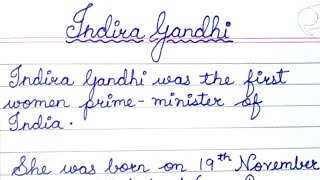 Indira Gandhi
Indira Gandhi was the first
women prime-minister of
India.
She was born on 19th November